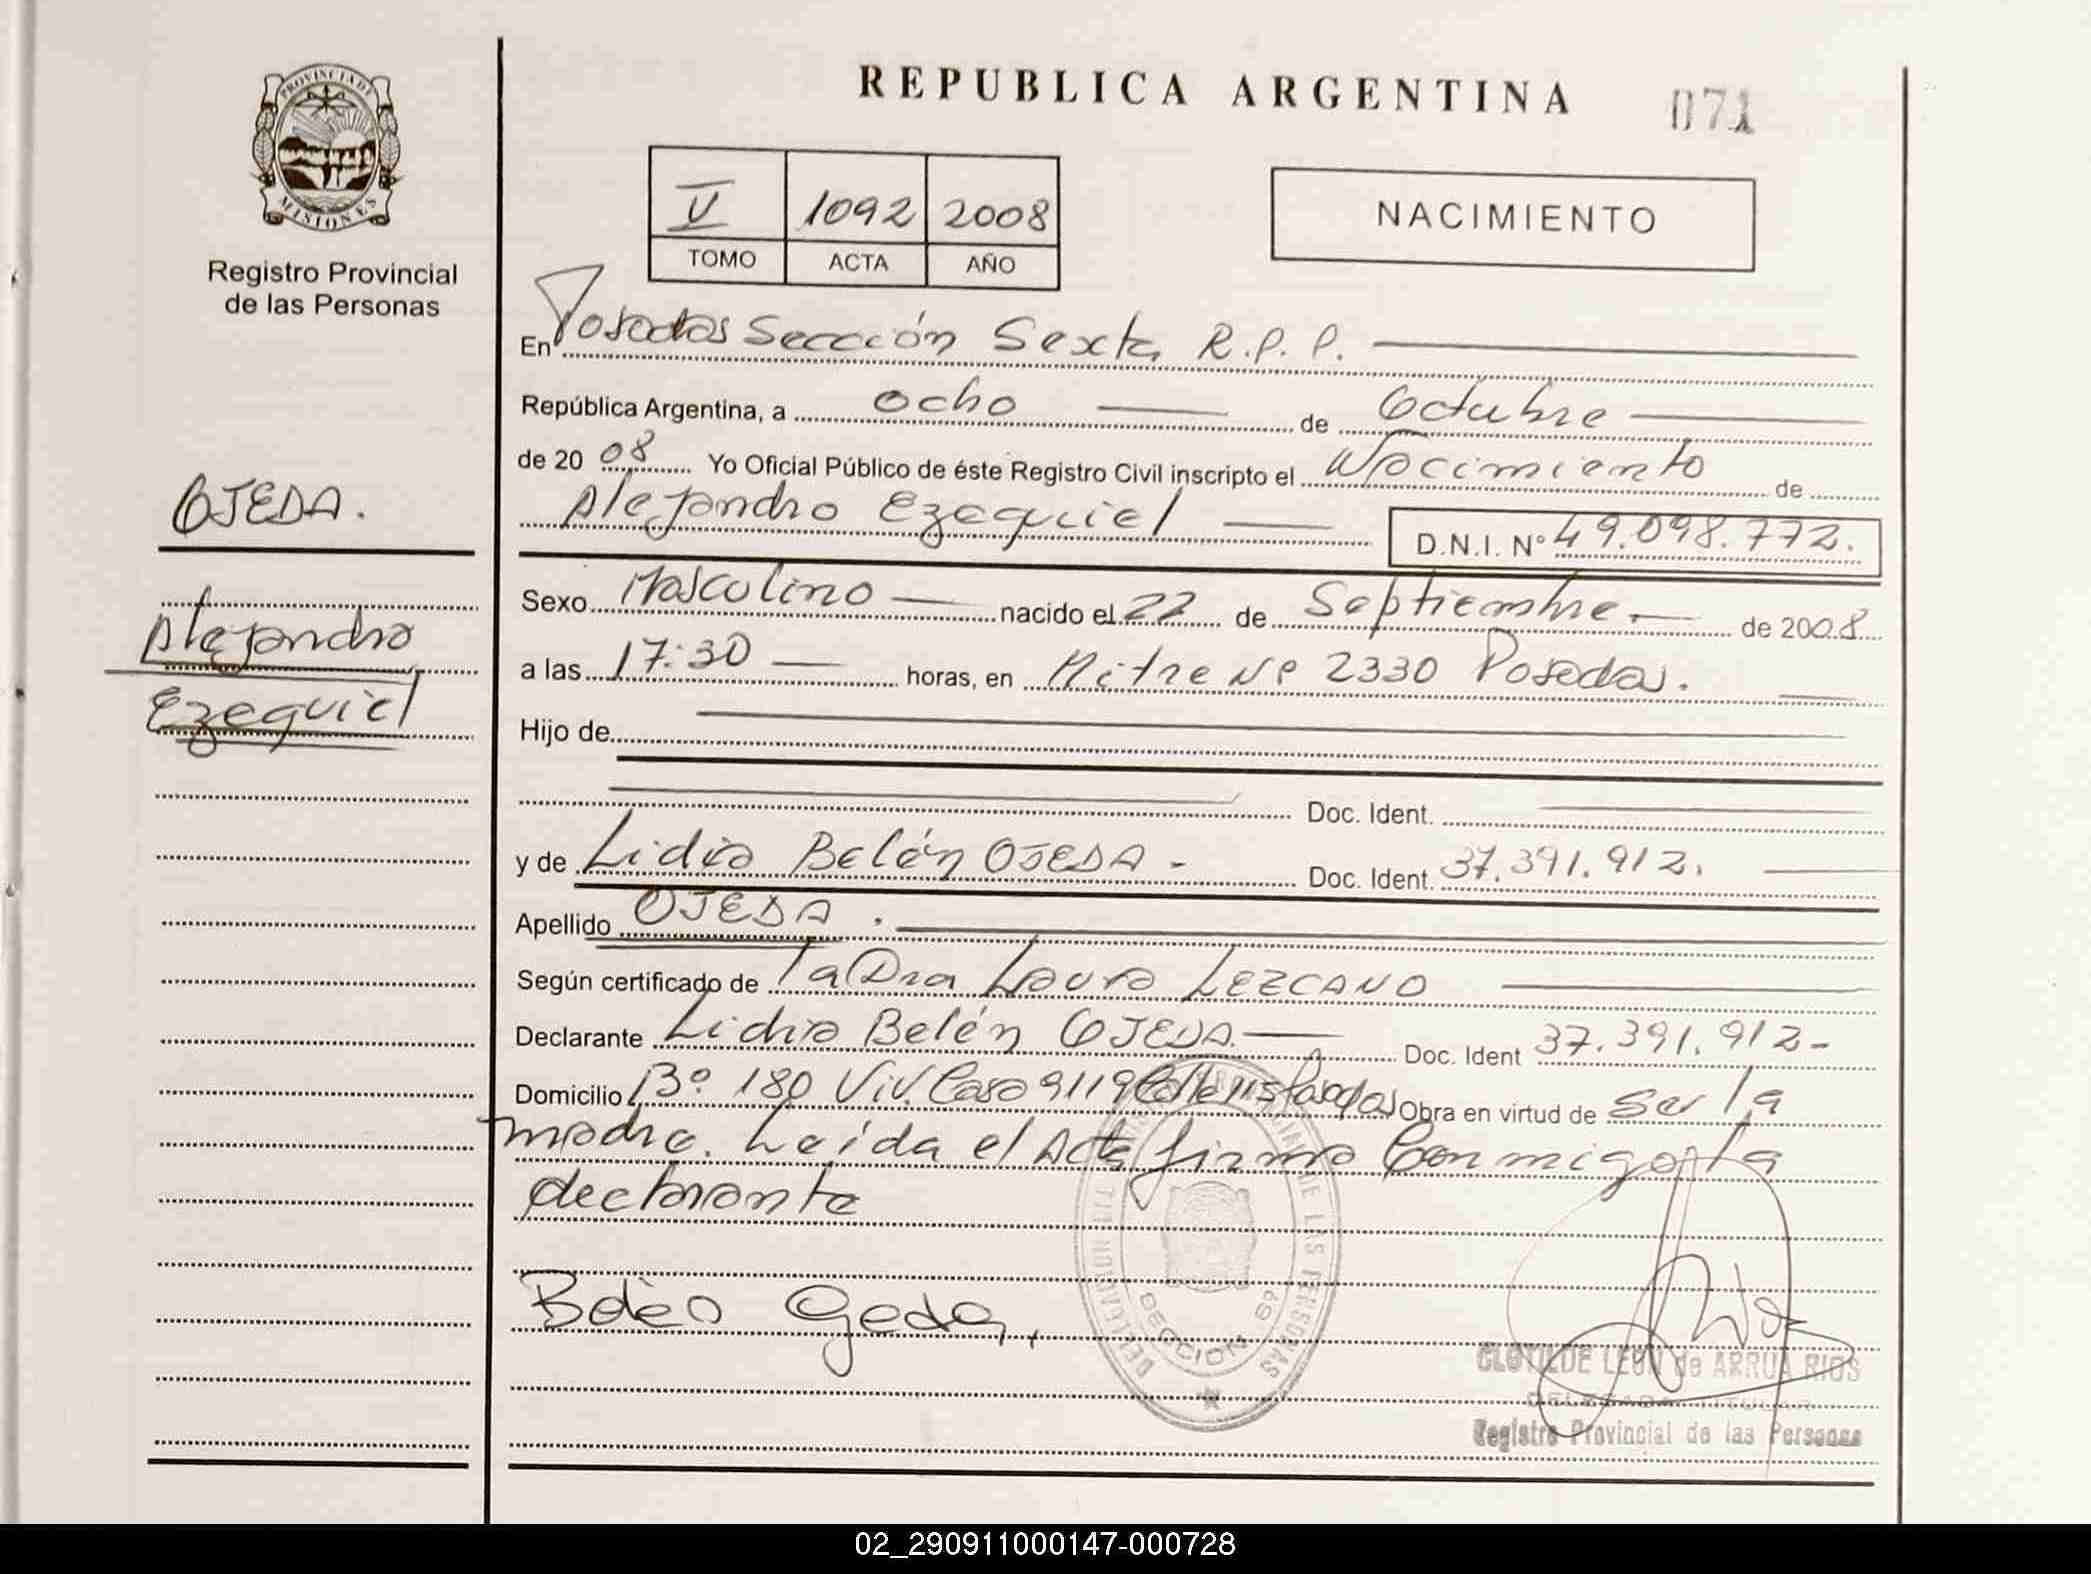 PROVINCIA DE
MISIONES
Registro Provincial
de las Personas
REPUBLICA ARGENTINA
071
V 1092 2008
TOMO ACTA AÑO
NACIMIENTO
En Posadas Sección Sexta R.P.P.
República Argentina, a ocho de Octubre
de 2008 Yo Oficial Público de éste Registro Civil inscripto el Nacimiento de
Alejandro Ezequiel D.N.I. Nº 49.098.772.
OJEDA.
Alejandro
Ezequiel
Sexo Masculino nacido el 22 de Septiembre de 2008
a las 17:30 horas, en Mitre Nº 2330 Posadas.
Hijo de
Doc. Ident.
y de Lidia Belén OJEDA - Doc. Ident. 37.391.912.
Apellido OJEDA.
Según certificado de la Dra Laura LEZCANO
Declarante Lidia Belén OJEDA. Doc. Ident 37.391.912-
Domicilio Bº 180 Viv. Casa 9119 Calle 115 Posadas Obra en virtud de ser la
madre. Leída el Acta firma conmigo la
declarante
Belén Ojeda.
SECCION 6º
DE LAS PERSONAS
CLOTILDE LEON de ARRUA RIOS
DELEGADA TITULAR
Registro Provincial de las Personas
02_290911000147-000728